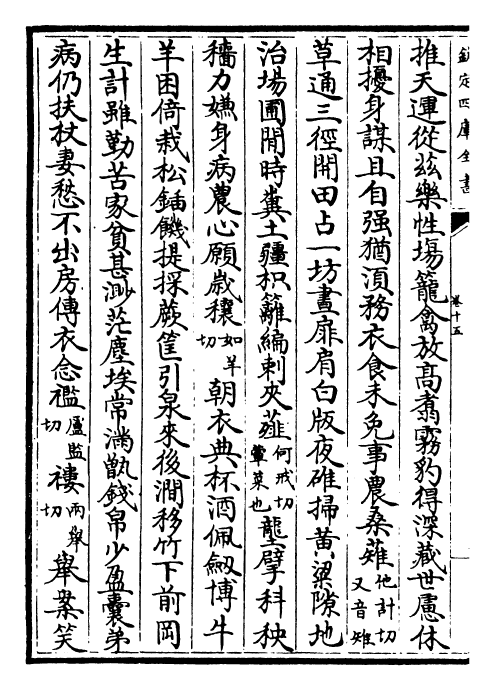 欽定四庫全書
卷十五
推天運從兹樂性塲籠禽放高翥霧豹得深藏世慮休
相擾身謀且自强猶湏務衣食未免事農桑薙他計切又音雉
草通三徑開田占一坊晝扉扃白版夜碓掃黄粱隙地
治場圃閒時糞土疆枳籬編刺夾薤何戒切葷菜也壟擘科秧
穡力嫌身病農心願歳穰如羊切朝衣典杯酒佩劔博牛
羊困倚栽松鍤饑提採蕨筐引泉來後澗移竹下前岡
生計雖勤苦家貧甚渺茫塵埃常滿甑錢帛少盈囊弟
病仍扶杖妻愁不出房傳衣念襤盧監切褸兩舉切舉案笑